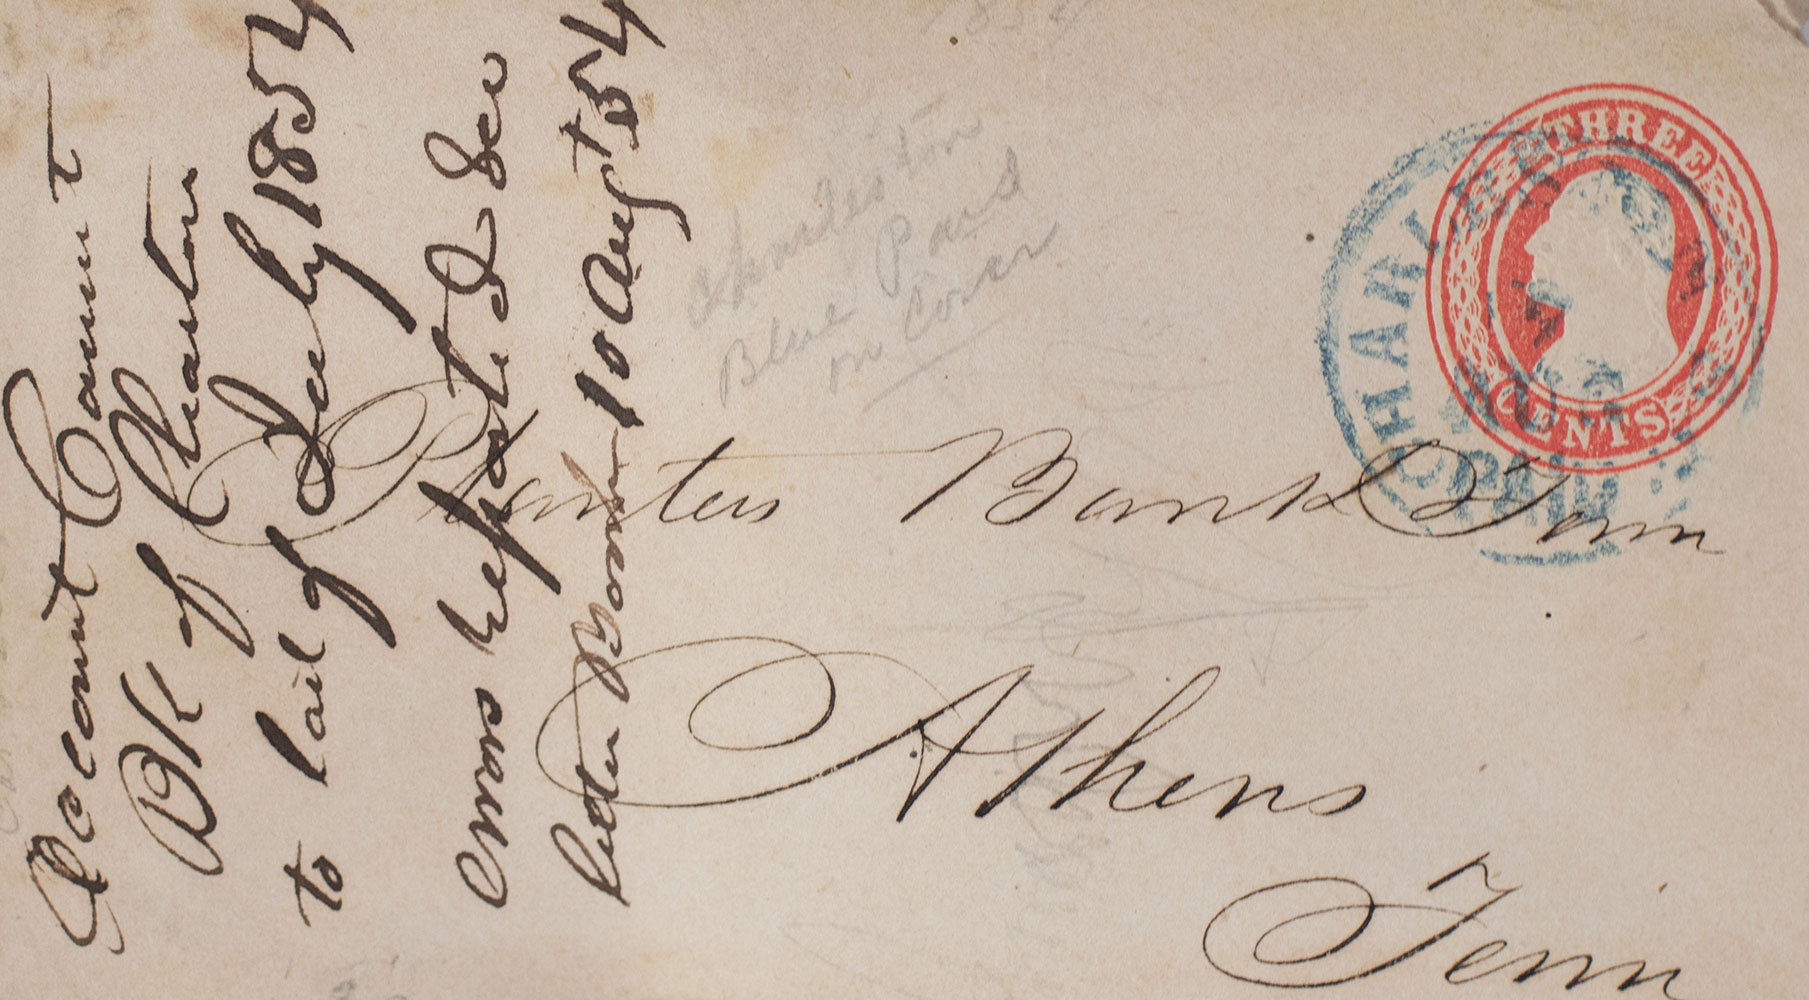 Account Current
BK of Charlton
to last of July 1854
Errors reported See
letter Book 10 Augt 54
Charleston
Blue Paid
on Cover
THREE
CENTS
CHARLESTON
PAID
Planters Bank Tenn
Athens
Tenn